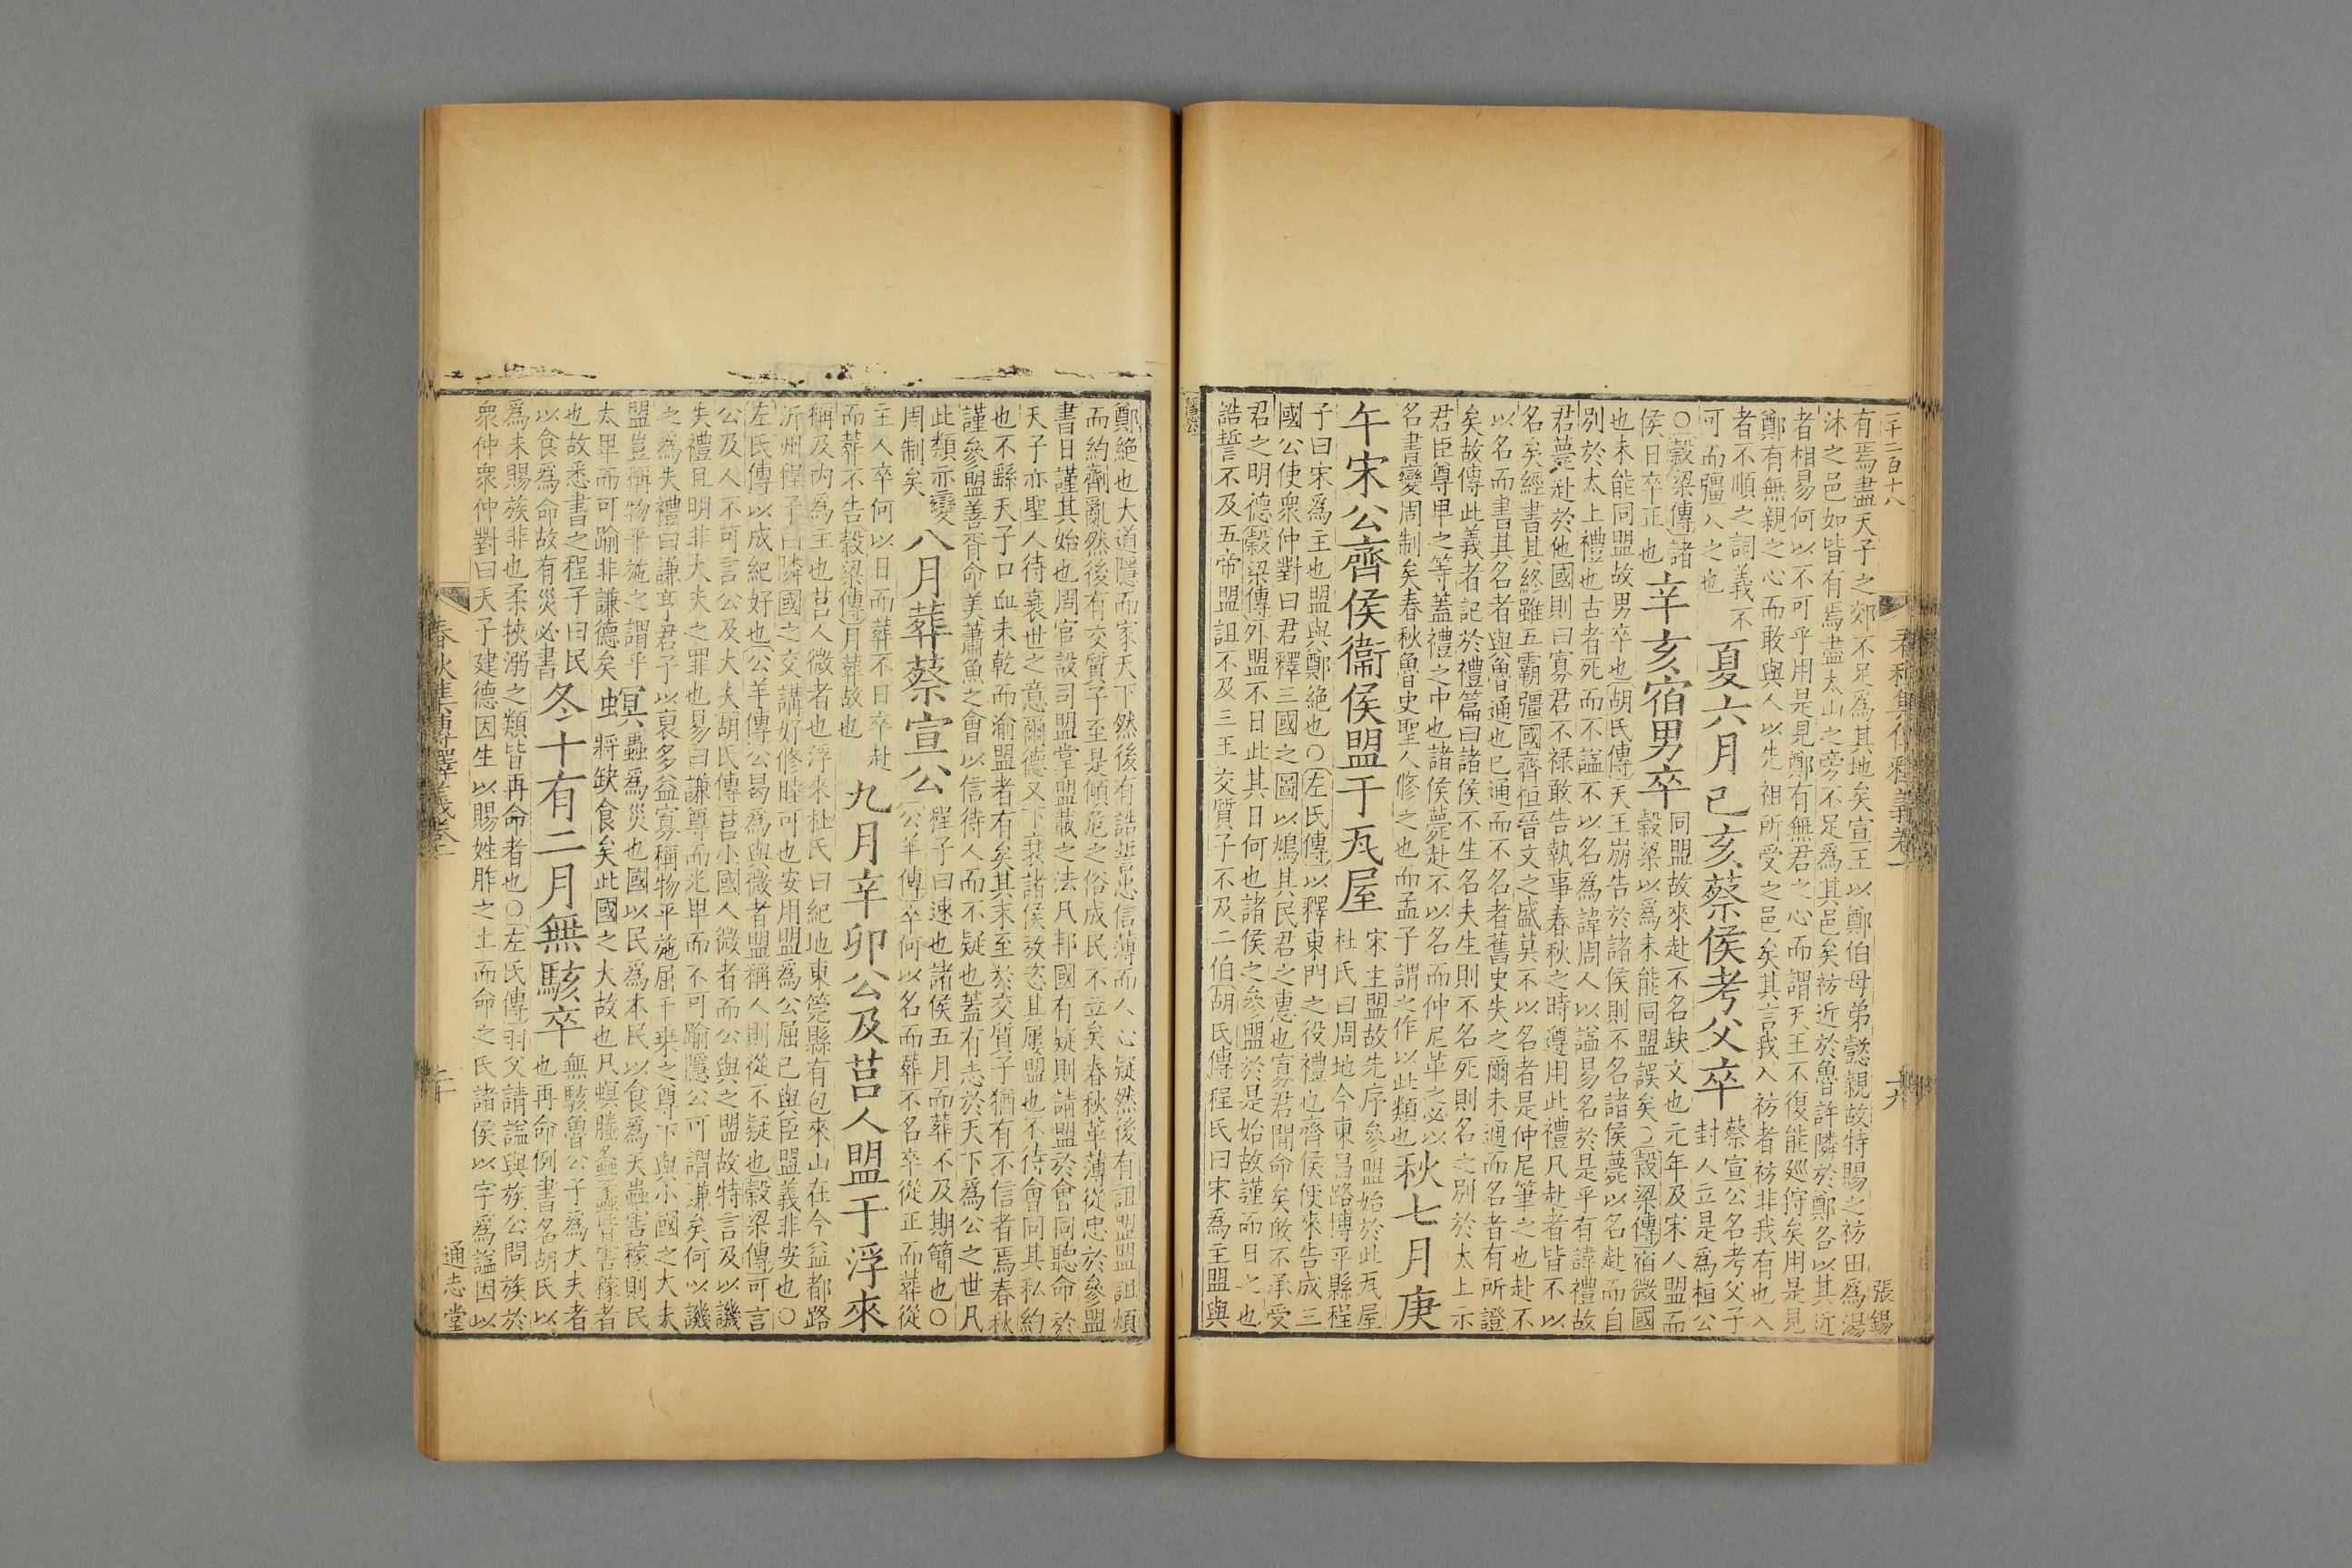 二千二百十八
有焉盡天子之郊不足為其地矣宣王以鄭伯母弟懿親故特賜之祊田為湯
沐之邑如皆有焉盡太山之旁不足為其邑矣祊近於魯許隣於鄭各以其近
者相易何以不可乎用是見鄭有無君之心而謂天王不復能廵狩矣用是見
鄭有無親之心而敢與人以先祖所受之邑矣其言我入祊者祊非我有也入
者不順之詞義不
可而彊入之也
夏六月己亥蔡侯考父卒
蔡宣公名考父子
封人立是爲桓公
○穀梁傳諸
侯日卒正也
辛亥宿男卒
同盟故來赴不名缺文也元年及宋人盟而
穀梁以爲未能同盟誤矣○穀梁傳宿微國
也未能同盟故男卒也胡氏傳天王崩告於諸侯則不名諸侯薨以名赴而自
別於太上禮也古者死而不諡不以名為諱周人以諡易名於是乎有諱禮故
君薨赴於他國則曰寡君不禄敢告執事春秋之時遵用此禮凡赴者皆不以
名矣經書其終雖五霸彊國齊桓晉文之盛莫不以名者是仲尼筆之也赴不
以名而書其名者與魯通也已通而不名者舊史失之爾未通而名者有所證
矣故傳此義者記於禮篇曰諸侯不生名夫生則不名死則名之別於太上示
君臣尊卑之等蓋禮之中也諸侯薨赴不以名而仲尼革之必以
名書變周制矣春秋魯史聖人修之也而孟子謂之作以此類也
秋七月庚
午宋公齊侯衞侯盟于瓦屋
宋主盟故先序參盟始於此瓦屋
杜氏曰周地今東昌路博平縣程
子曰宋爲主也盟與鄭絶也○左氏傳以釋東門之役禮也齊侯使來告成三
國公使衆仲對曰君釋三國之圖以鳩其民君之惠也寡君聞命矣敢不承受
君之明德穀梁傳外盟不日此其日何也諸侯之參盟於是始故謹而日之也
誥誓不及五帝盟詛不及三王交質子不及二伯胡氏傳程氏曰宋爲主盟與
隱公
春秋集傳釋義卷一
十九
張錫
鄭絶也大道隱而家天下然後有誥誓忠信薄而人心疑然後有詛盟盟詛煩
而約劑亂然後有交質子至是傾危之俗成民不立矣春秋革薄從忠於參盟
書日謹其始也周官設司盟掌盟載之法凡邦國有疑則請盟於會同聽命於
天子亦聖人待衰世之意爾德又下衰諸侯放恣其屢盟也不待會同其私約
也不繇天子口血未乾而渝盟者有矣其末至於交質子猶有不信者焉春秋
謹參盟善胥命美蕭魚之會以信待人而不疑也蓋有志於天下爲公之世凡
此類亦變
周制矣
八月葬蔡宣公
程子曰速也諸侯五月而葬不及期簡也○
公羊傳卒何以名而葬不名卒從正而葬從
主人卒何以日而葬不日卒赴
而葬不告穀梁傳月葬故也
九月辛卯公及莒人盟于浮來
稱及內爲主也莒人微者也浮來杜氏曰紀地東筦縣有包來山在今益都路
沂州程子曰隣國之交講好修睦可也安用盟爲公屈已與臣盟義非安也○
左氏傳以成紀好也公羊傳公曷爲與微者盟稱人則從不疑也穀梁傳可言
公及人不可言公及大夫胡氏傳莒小國人微者而公與之盟故特言及以譏
失禮且明非大夫之罪也易曰謙尊而光卑而不可踰隱公可謂謙矣何以譏
之爲失禮曰謙亨君子以裒多益寡稱物平施屈千乘之尊下與小國之大夫
盟豈稱物平施之謂乎
太卑而可踰非謙德矣
螟
蟲爲災也國以民爲本民以食爲天蟲害稼則民
將缺食矣此國之大故也凡螟螣蟊蠡皆害稼者
也故悉書之程子曰民
以食爲命故有災必書
冬十有二月無駭卒
無駭魯公子爲大夫者
也再命例書名胡氏以
爲未賜族非也柔挾溺之類皆再命者也○左氏傳羽父請諡與族公問族於
衆仲衆仲對曰天子建德因生以賜姓胙之土而命之氏諸侯以字爲諡因以
春秋集傳釋義卷一
二十
通志堂